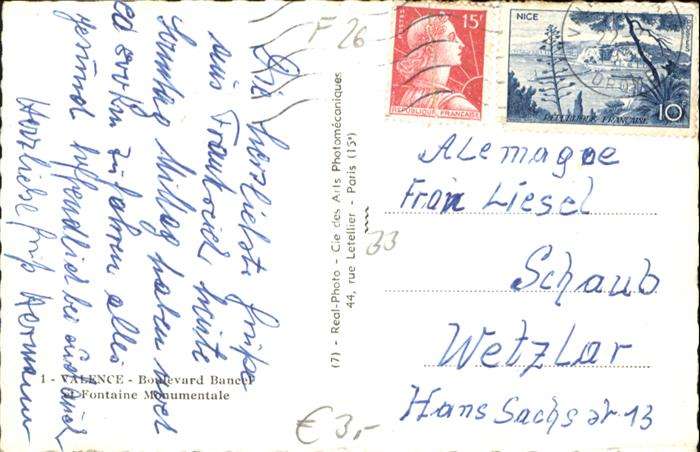 Die herzlichste Grüße
aus Frankreich heute
Sonntag Mittag haben noch
zu fahren alles
gesund hoffendlich bei Euch auch
Herzliche Grüß Hermann
1 - VALENCE - Boulevard Bancel
et Fontaine Monumentale
F 26
€ 3,-
(7) - Real-Photo - Cie des Arts Photomécaniques
44, rue Letellier - Paris (15e)
33
POSTES
15F
REPUBLIQUE FRANÇAISE
NICE
10F
REPUBLIQUE FRANÇAISE
Alemagne
Frau Liesel
Schaub
Wetzlar
Hans Sachs str 13